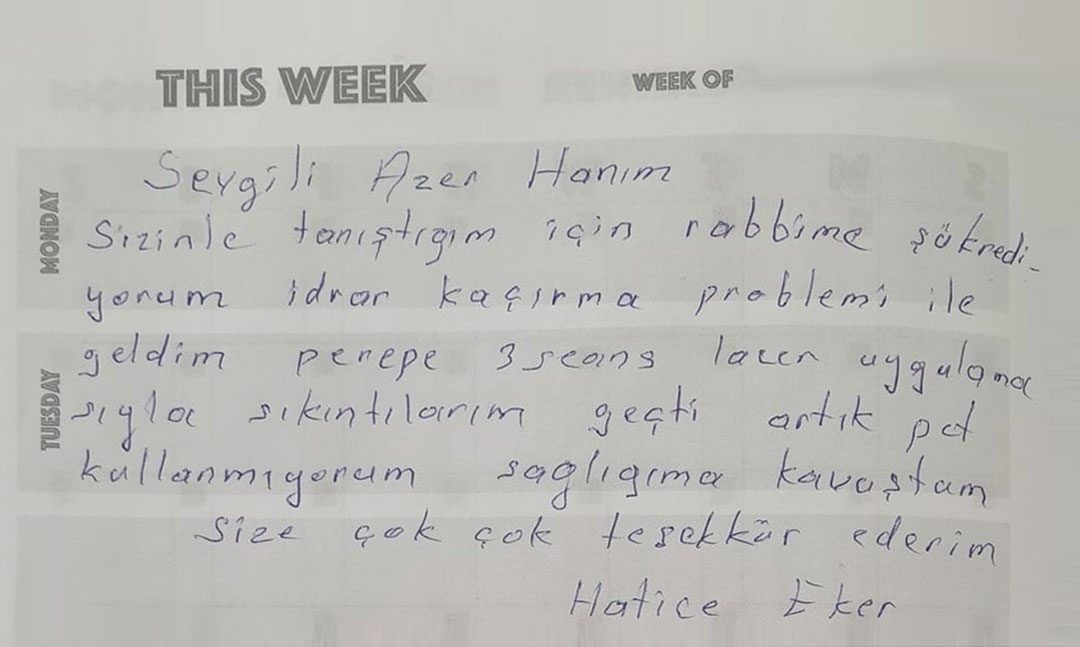 THIS WEEK
WEEK OF
MONDAY
Sevgili Azer Hanım
Sizinle tanıştıgım için rabbime şükredi-
yorum idrar kaçırma problemi ile
geldim perepe 3 seans lazer uygulama
TUESDAY
sıyla sıkıntılarım geçti artık pet
kullanmıyorum saglıgıma kavuştum
Size çok çok teşekkür ederim
Hatice Eker